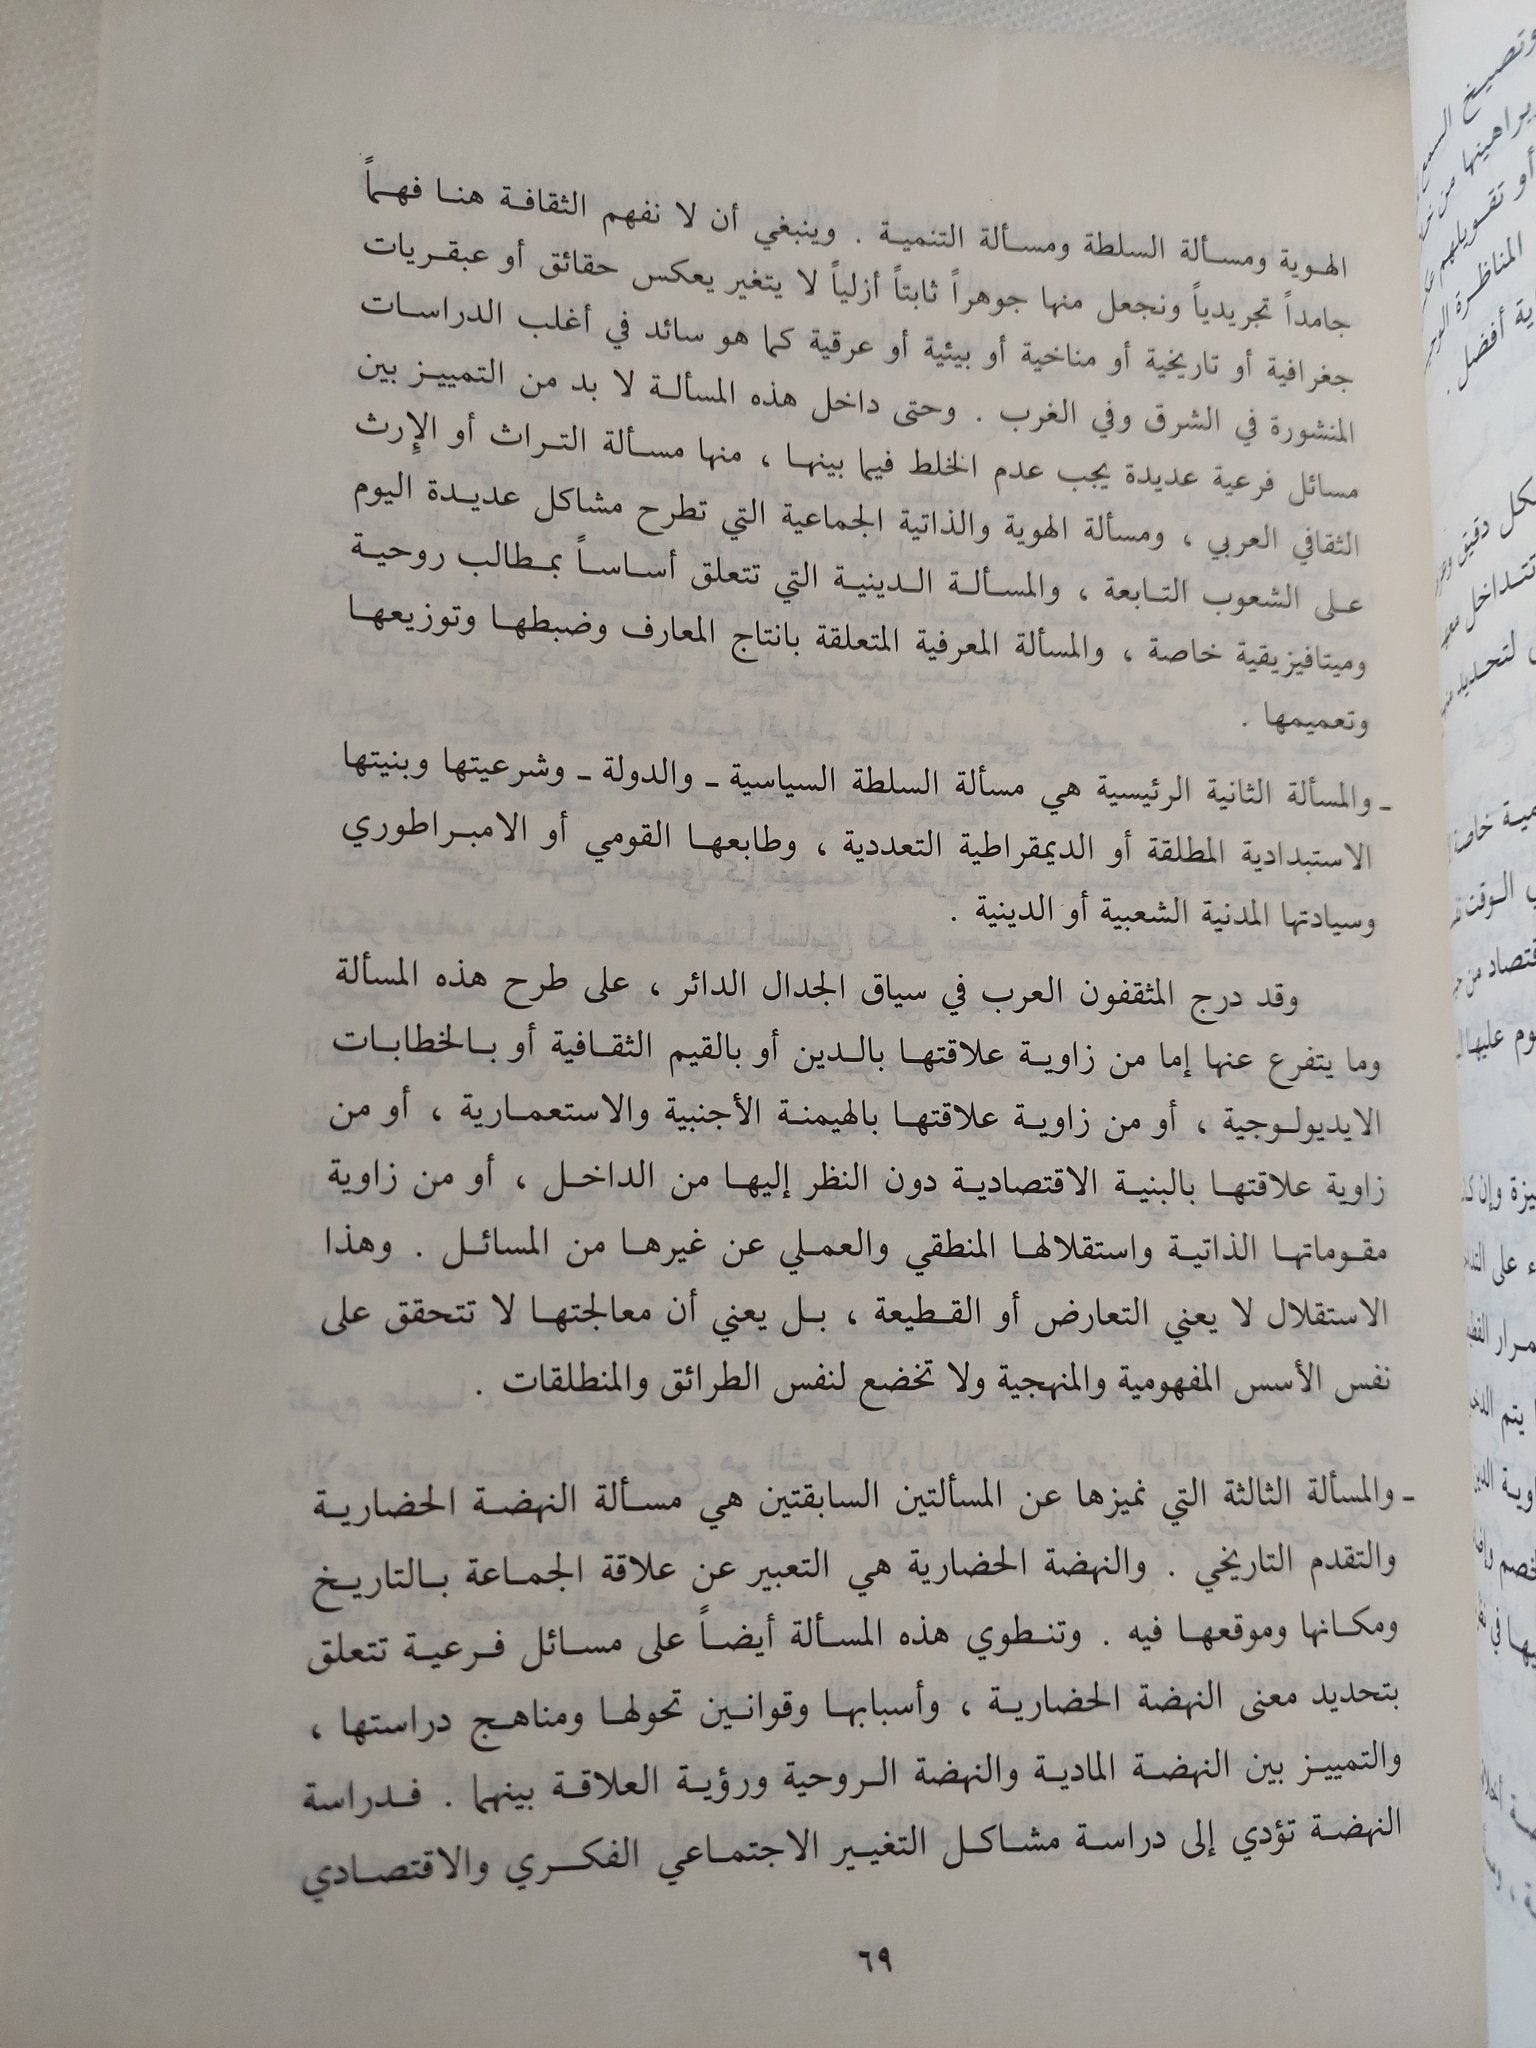 الهوية ومسألة السلطة ومسألة التنمية . وينبغي أن لا نفهم الثقافة هنا فهماً
جامداً تجريدياً ونجعل منها جوهراً ثابتاً أزلياً لا يتغير يعكس حقائق أو عبقريات
جغرافية أو تاريخية أو مناخية أو بيئية أو عرقية كما هو سائد في أغلب الدراسات
المنشورة في الشرق وفي الغرب . وحتى داخل هذه المسألة لا بد من التمييز بين
مسائل فرعية عديدة يجب عدم الخلط فيما بينها ، منها مسألة التراث أو الإرث
الثقافي العربي ، ومسألة الهوية والذاتية الجماعية التي تطرح مشاكل عديدة اليوم
على الشعوب التابعة ، والمسألة الدينية التي تتعلق أساساً بمطالب روحية
وميتافيزيقية خاصة ، والمسألة المعرفية المتعلقة بانتاج المعارف وضبطها وتوزيعها
وتعميمها .
ـ والمسألة الثانية الرئيسية هي مسألة السلطة السياسية ـ والدولة ـ وشرعيتها وبنيتها
الاستبدادية المطلقة أو الديمقراطية التعددية ، وطابعها القومي أو الامبراطوري
وسيادتها المدنية الشعبية أو الدينية .
وقد درج المثقفون العرب في سياق الجدال الدائر ، على طرح هذه المسألة
وما يتفرع عنها إما من زاوية علاقتها بالدين أو بالقيم الثقافية أو بالخطابات
الايديولوجية ، أو من زاوية علاقتها بالهيمنة الأجنبية والاستعمارية ، أو من
زاوية علاقتها بالبنية الاقتصادية دون النظر إليها من الداخل ، أو من زاوية
مقوماتها الذاتية واستقلالها المنطقي والعملي عن غيرها من المسائل . وهذا
الاستقلال لا يعني التعارض أو القطيعة ، بل يعني أن معالجتها لا تتحقق على
نفس الأسس المفهومية والمنهجية ولا تخضع لنفس الطرائق والمنطلقات .
ـ والمسألة الثالثة التي نميزها عن المسألتين السابقتين هي مسألة النهضة الحضارية
والتقدم التاريخي . والنهضة الحضارية هي التعبير عن علاقة الجماعة بالتاريخ
ومكانها وموقعها فيه . وتنطوي هذه المسألة أيضاً على مسائل فرعية تتعلق
بتحديد معنى النهضة الحضارية ، وأسبابها وقوانين تحولها ومناهج دراستها ،
والتمييز بين النهضة المادية والنهضة الروحية ورؤية العلاقة بينهما . فدراسة
النهضة تؤدي إلى دراسة مشاكل التغيير الاجتماعي الفكري والاقتصادي
٦٩